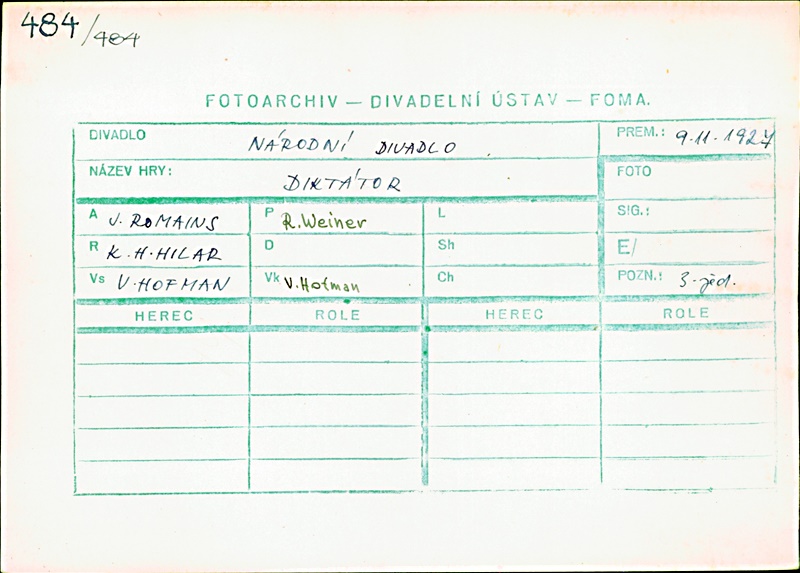 484/484
FOTOARCHIV — DIVADELNÍ ÚSTAV — FOMA.
DIVADLO NÁRODNÍ DIVADLO PREM.: 9.11.1927
NÁZEV HRY: DIKTÁTOR FOTO
A J. ROMAINS P R. Weiner L SIG.:
R K.H.HILAR D Sh E/
Vs V.HOFMAN Vk V.Hofman Ch POZN.: 3-jed.
HEREC ROLE HEREC ROLE